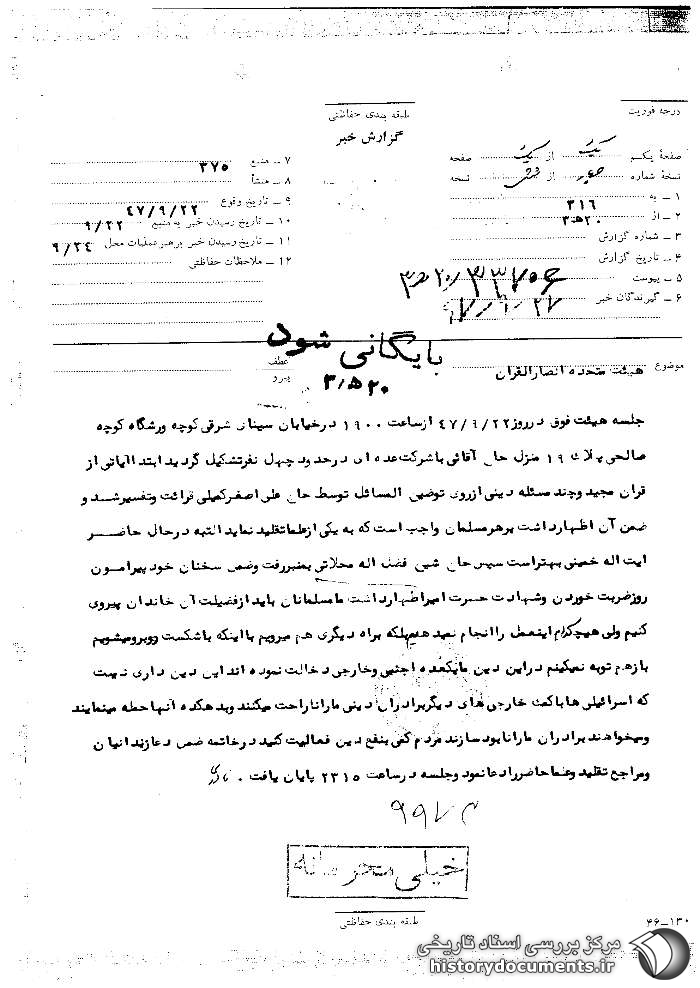 درجه فوریت
طبقه بندی حفاظتی
گزارش خبر
صفحهٔ یکم یک از یک صفحه
نسخهٔ شماره از نسخه
۱ ــ به ۳۱۶
۲ ــ از ۲۰ﻫ۳
۳ ــ شماره گزارش
۴ ــ تاریخ گزارش
۵ ــ پیوست
۶ ــ گیرندگان خبر
۷ ــ منبع ۳۷۵
۸ ــ منشأ
۹ ــ تاریخ وقوع ۴۷/۹/۲۲
۱۰ ــ تاریخ رسیدن خبر به منبع ۹/۲۲
۱۱ ــ تاریخ رسیدن خبر برهبر عملیات محل ۹/۲۴
۱۲ ــ ملاحظات حفاظتی
بایگانی شود
موضوع هیئت متحده انصارالقران
عطف
پیرو
جلسه هیئت فوق درروز ۴۷/۹/۲۲ ازساعت ۱۹۰۰ درخیابان سینای شرقی کوچه ورشگاه کوچه
صالحی پلاک ۱۹ منزل حاج آقائی باشرکت عده ای درحدود چهل نفرتشکیل گردید ابتدا آیاتی از
قران مجید وچند مسئله دینی ازروی توضیح المسائل توسط حاج علی اصغر کمیلی قرائت وتفسیرشد و
ضمن آن اظهارداشت برهرمسلمان واجب است که به یکی ازعلما تقلید نماید التبه درحال حاضر
ایت اله خمینی بهتراست سپس حاج شیخ فضل اله محلاتی بمنبررفت وضمن سخنان خود پیرامون
روزضربت خوردن وشهادت حضرت امیراظهارداشت مامسلمانان باید ازفضیلت آن خاندان پیروی
کنیم ولی هیچکدام اینعمل راانجام نمیدهیم بلکه براه دیگری هم میرویم بااینکه باشکست روبرومیشویم
بازهم توبه نمیکنیم دراین دین مایکعده اجنبی وخارجی دخالت نموده انداین دین داری نیست
که اسرائیلی ها باکمک خارجی های دیگربرادران دینی ماراناراحت میکنند وبدهکده آنها حمله مینمایند
ومیخواهند برادران مارانابود سازند مردم کمی بنفع دین فعالیت کنید درخاتمه ضمن دعا زندانیان
ومراجع تقلید وعلماحاضررادعانمود وجلسه درساعت ۲۳۱۵ پایان یافت .
خیلی محرمانه
طبقه بندی حفاظتی
۴۶ــ۱۳۰
مرکز بررسی اسناد تاریخی
historydocuments.ir